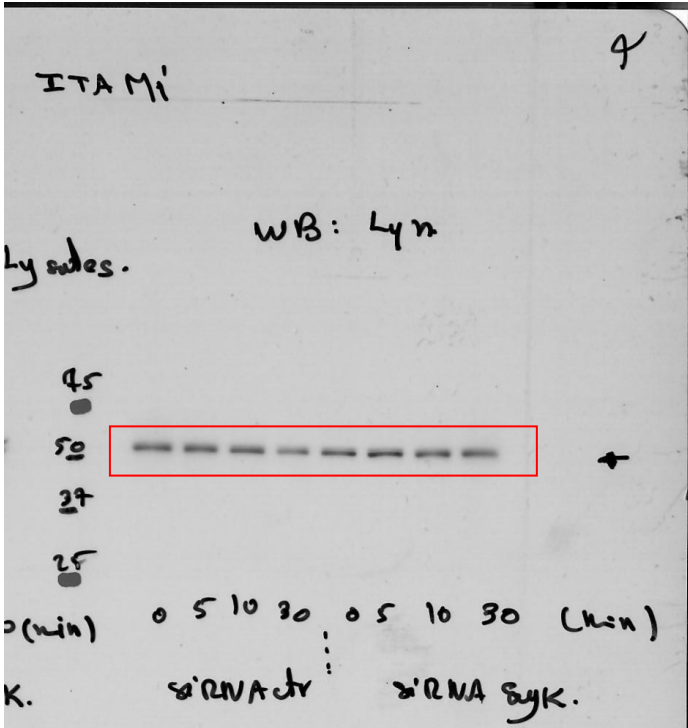 ITAMi
WB: Lyn
Lysates.
50
37
25
(min) 0 5 10 30 0 5 10 30 (min)
K. siRNA ctr siRNA Syk.